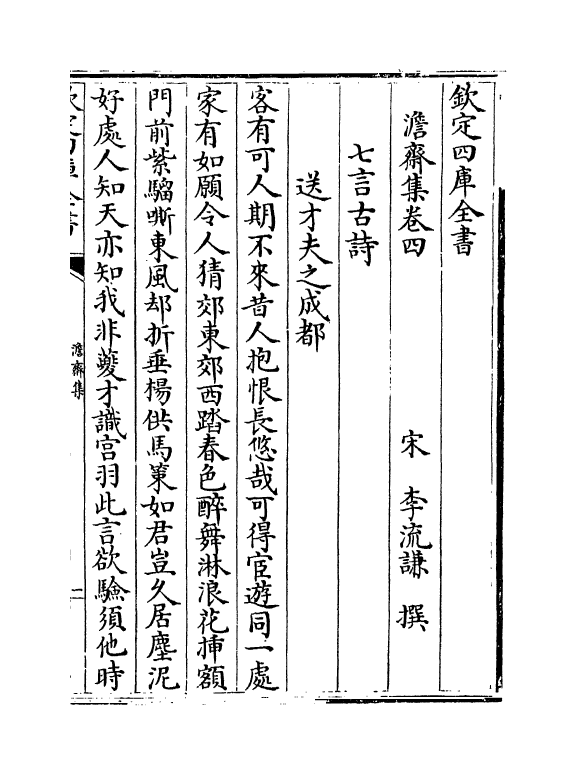 欽定四庫全書
澹齋集卷四
宋 李流謙 撰
七言古詩
送才夫之成都
客有可人期不來昔人抱恨長悠哉可得宦遊同一處
家有如願令人猜郊東郊西踏春色醉舞淋浪花揷額
門前紫騮嘶東風却折垂楊供馬箠如君豈久居塵泥
好處人知天亦知我非夔才識宫羽此言欲驗須他時
欽定四庫全書
澹齋集
二